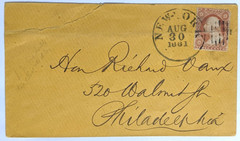 NEW-YORK
AUG
30
1861
Hon Richard Vaux
520 Walnut St
Philadelphia